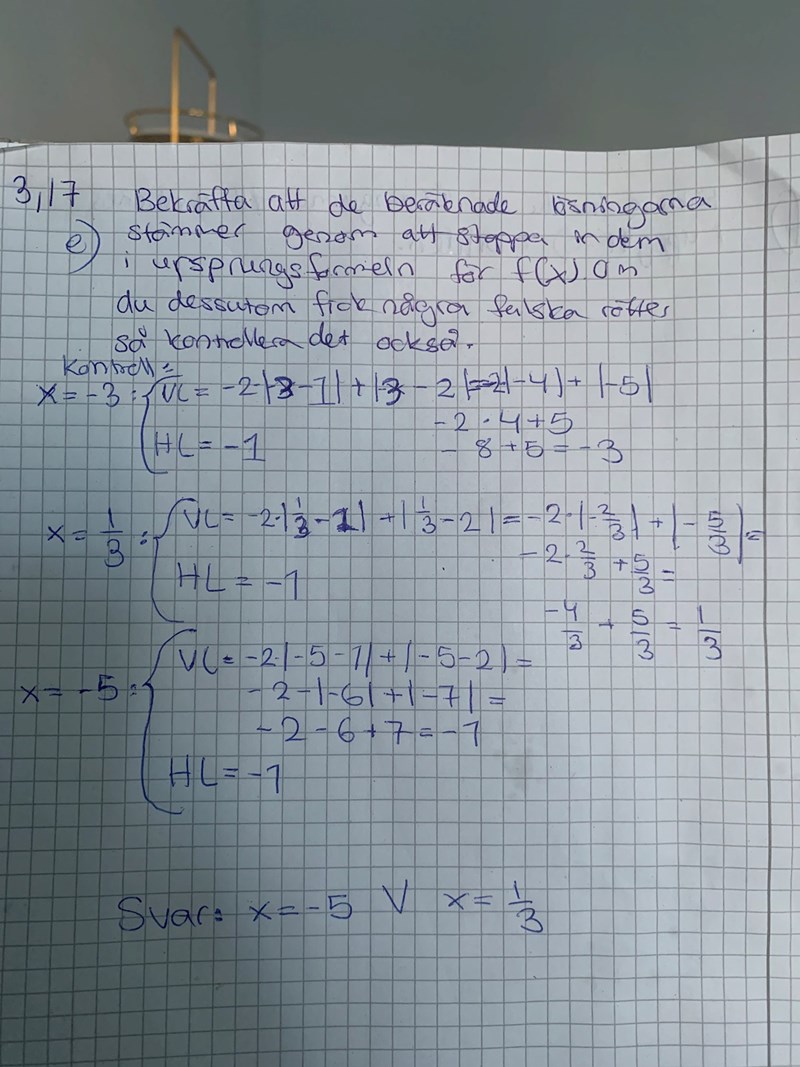 3,17 Bekräfta att de beräknade lösningarna
e) stämmer genom att stoppa in dem
i ursprungsformeln för f(x) Om
du dessutom fick några falska rötter
så kontrollera det också.
Kontroll:
x = -3 : VL = -2·|3-1| + |3-2| = -2|-4| + |-5|
-2·4+5
HL = -1 -8+5 = -3
x = 1/3 : VL = -2·|1/3-1| + |1/3-2| = -2·|-2/3| + |-5/3| =
-2·2/3 + 5/3 =
HL = -1
-4/3 + 5/3 = 1/3
VL = -2·|-5-1| + |-5-2| =
x = -5 : -2-|-6|+|-7| =
-2-6+7 = -1
HL = -1
Svar: x = -5 V x = 1/3